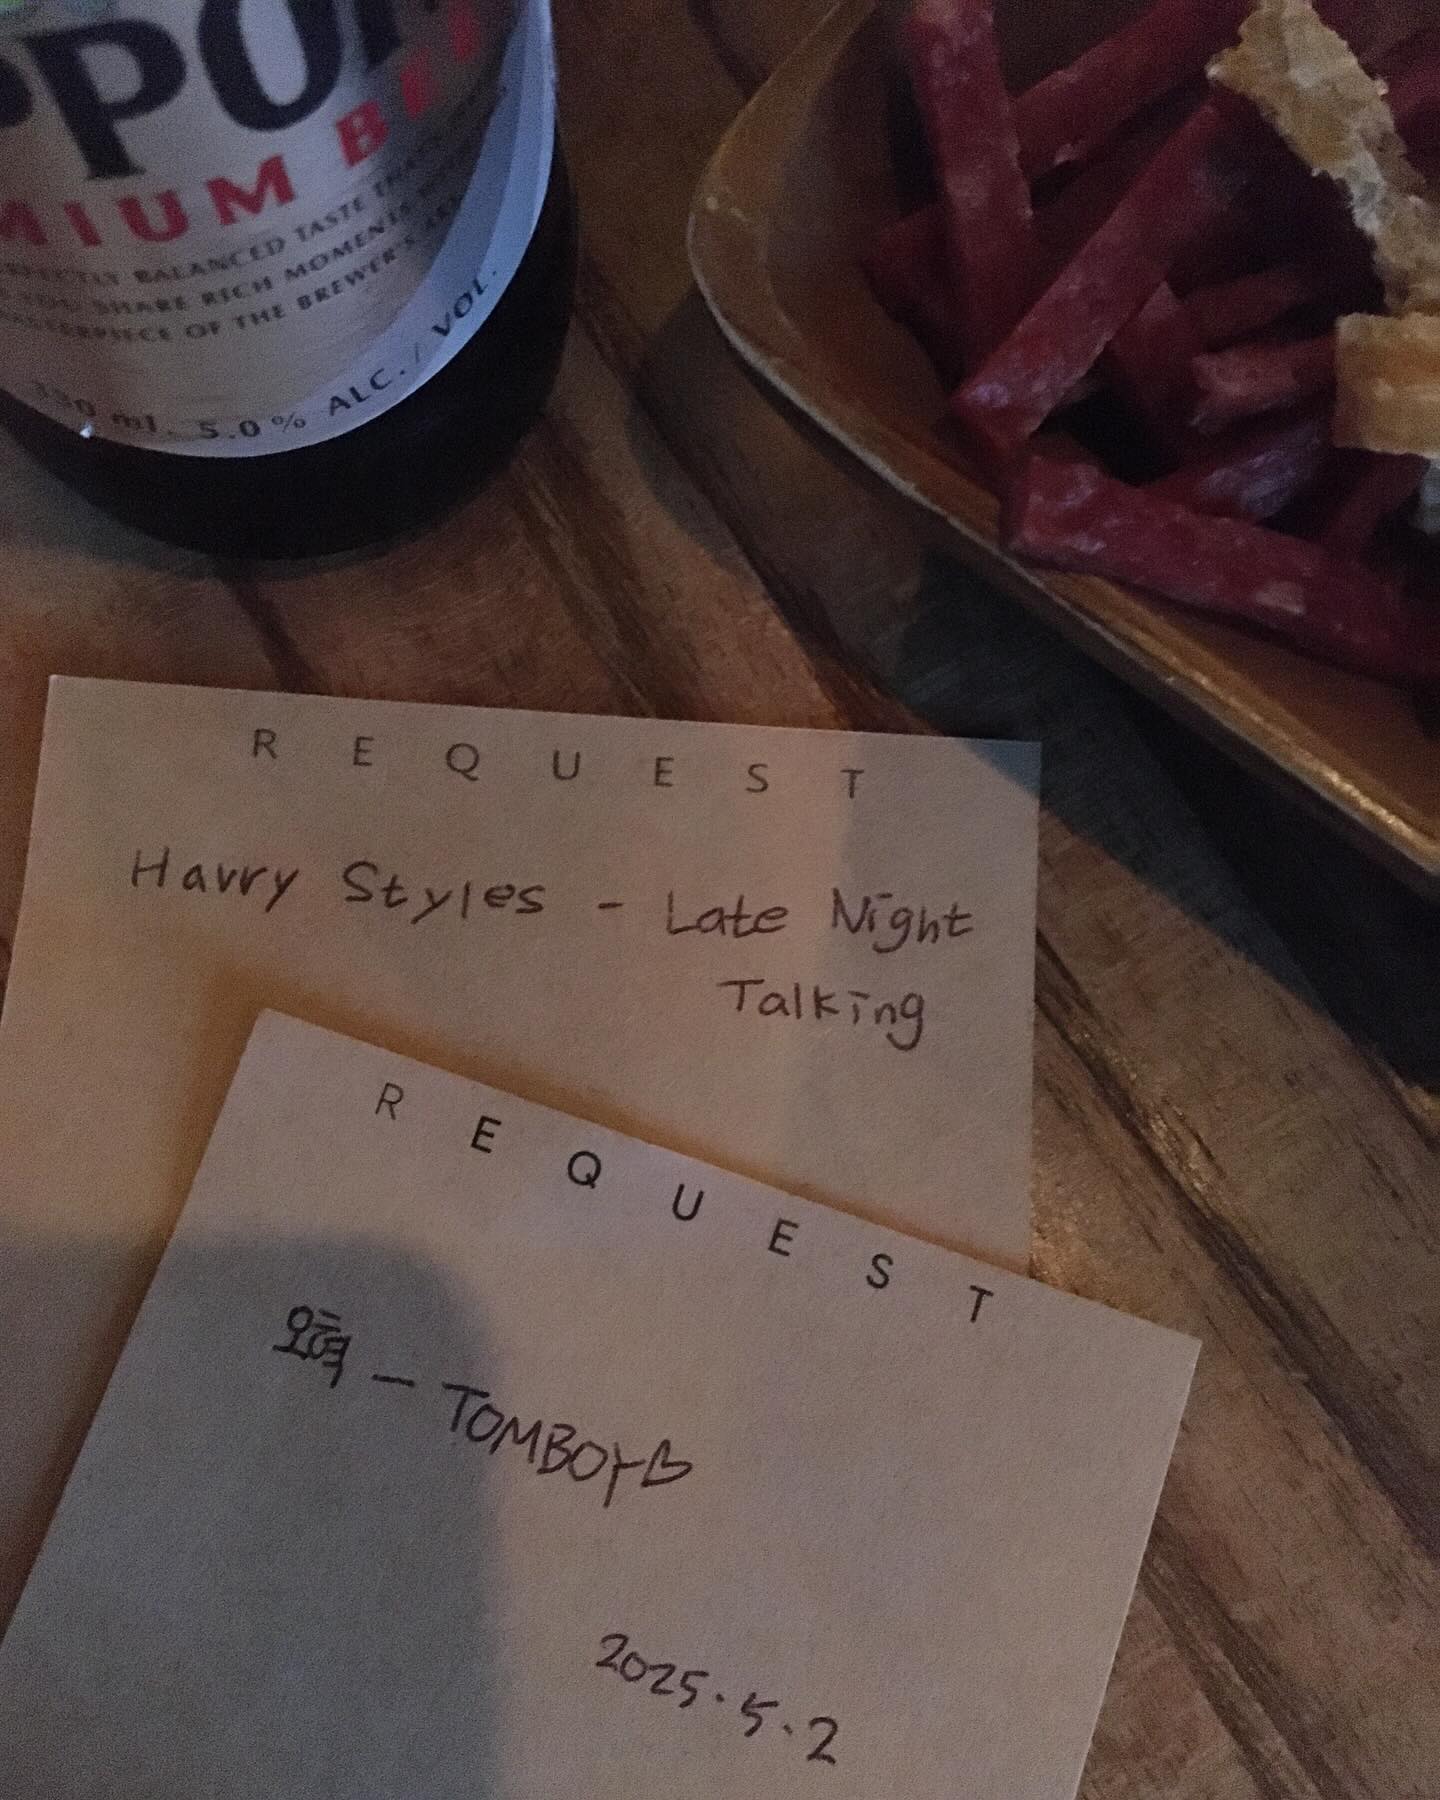 PPOR
MIUM BEE
BALANCED TASTE THAT
YOU SHARE RICH MOMENTS
MASTERPIECE OF THE BREWER'S ART
330 ml. 5.0% ALC./VOL.
REQUEST
Harry Styles - Late Night
Talking
REQUEST
오혁 - TOMBOY♡
2025.5.2